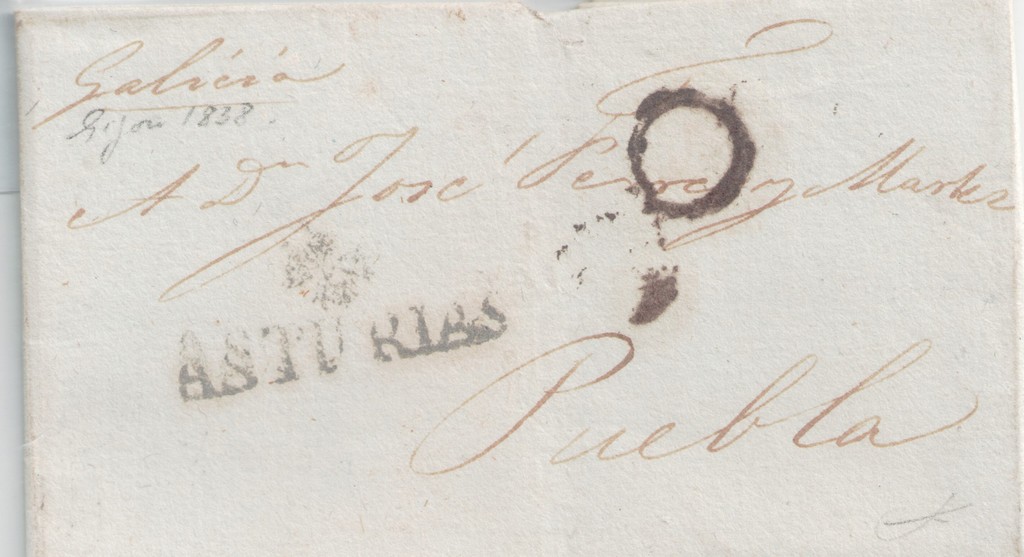 Galicia
Gijon 1838.
A Dn José Perez y Martz
ASTURIAS
Puebla